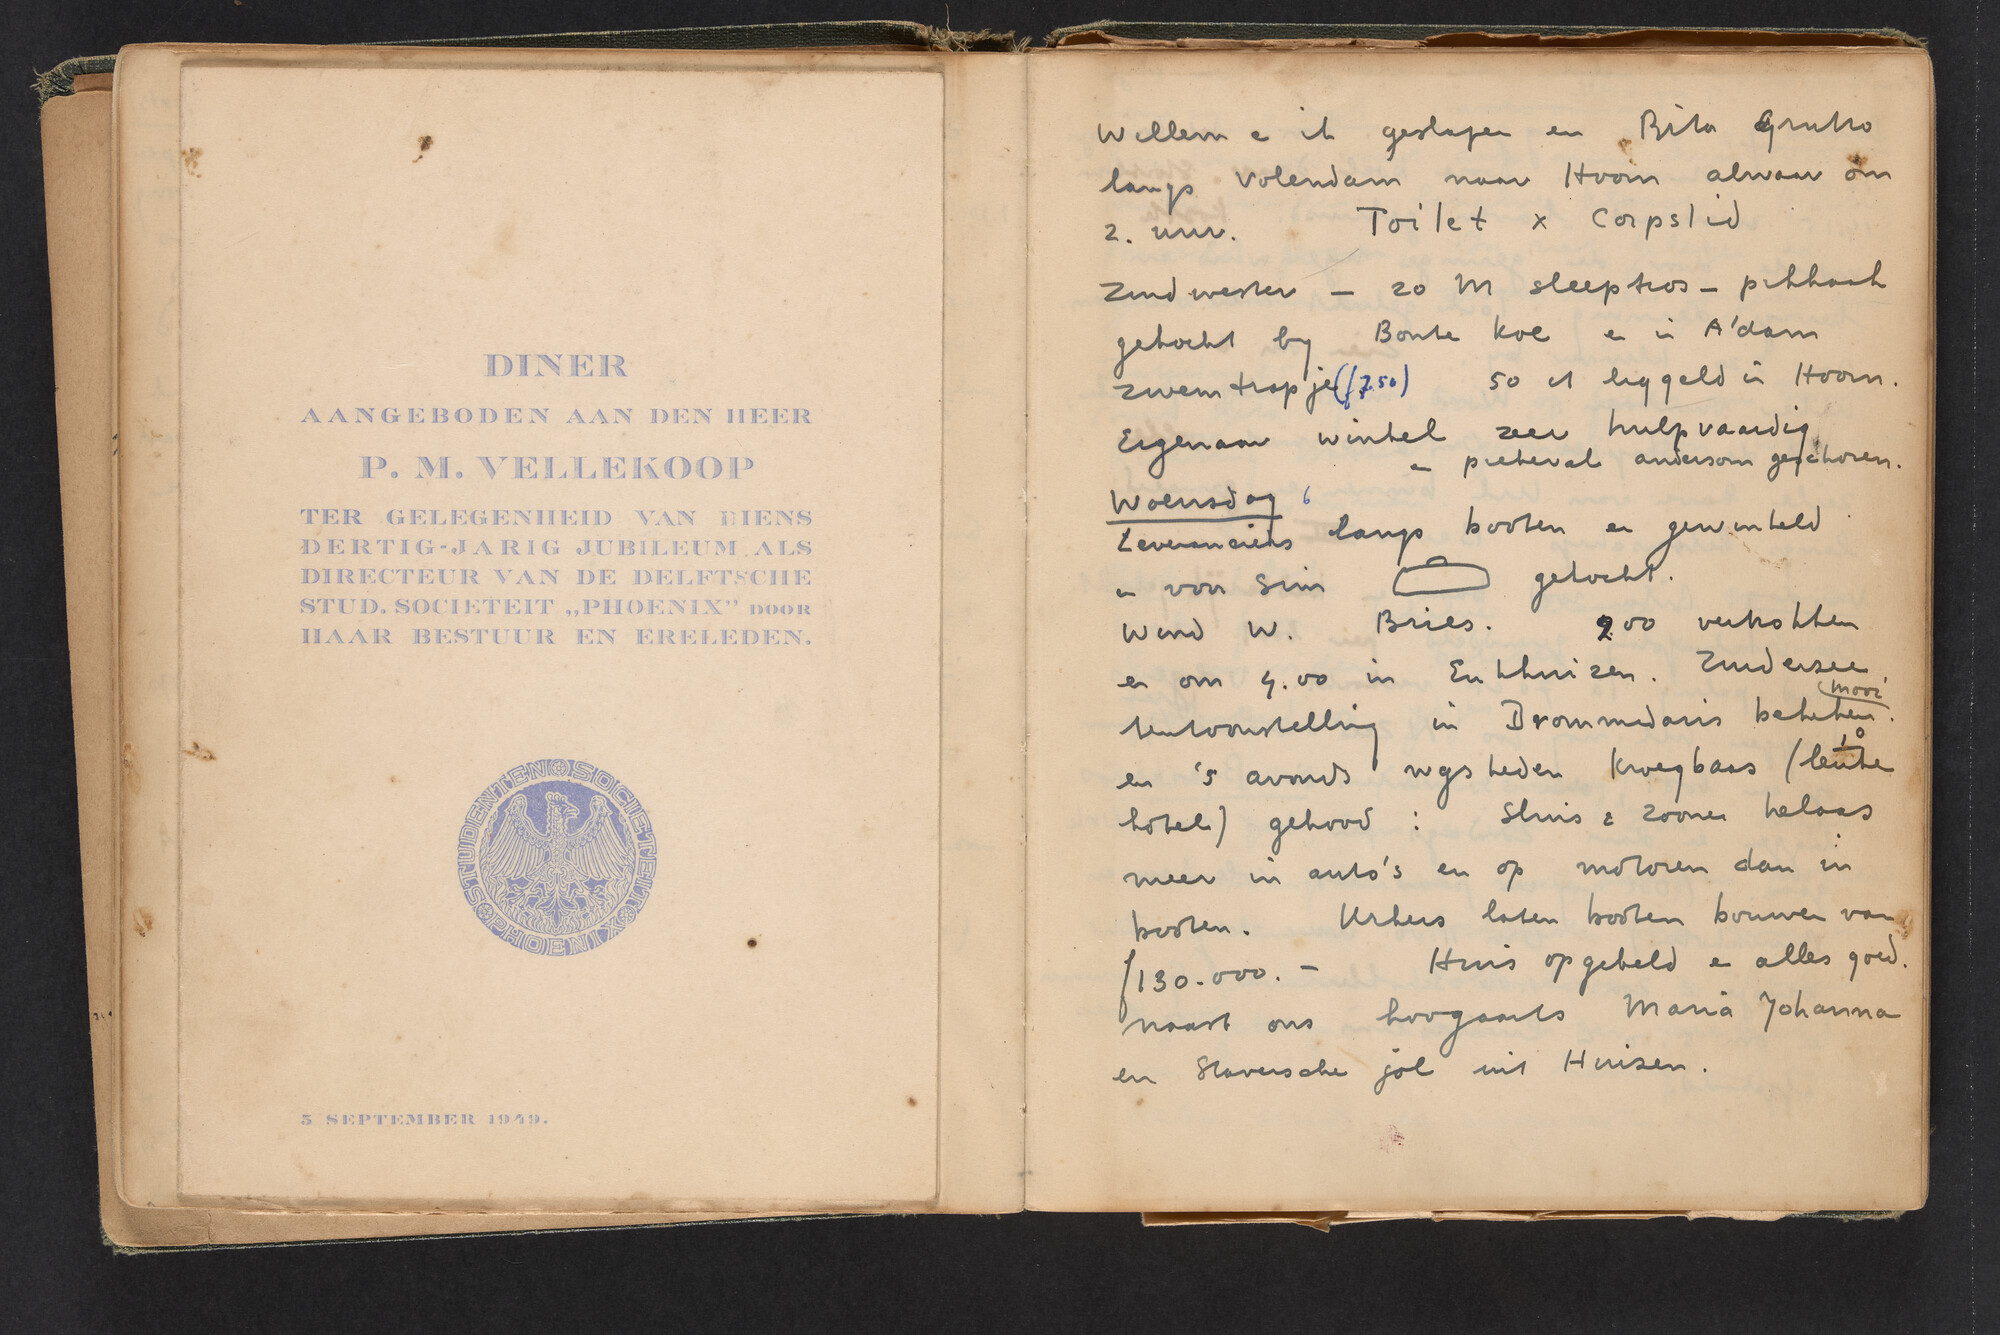 DINER
AANGEBODEN AAN DEN HEER
P. M. VELLEKOOP
TER GELEGENHEID VAN DIENS
DERTIG-JARIG JUBILEUM ALS
DIRECTEUR VAN DE DELFTSCHE
STUD. SOCIETEIT „PHOENIX” DOOR
HAAR BESTUUR EN ERELEDEN.
STUDENTEN SOCIETEIT PHOENIX
5 SEPTEMBER 1949.
Willem e ik geslapen en Rita Grutto
langs Volendam naar Hoorn alwaar om
2. uur. Toilet x Corpslid
Zuidwester – 20 M sleeptros – pikhaak
gekocht bij Bonte Koe e in A'dam
zwemtrapje (f 7.50) 50 ct liggeld in Hoorn.
Eigenaar winkel zeer hulpvaardig
en piekeval andersom geschoren.
Woensdag 6
Leveranciers langs booten en gewinkeld
en voor Sim gekocht.
Wind W. Bries. 9.00 vertrokken
en om 4.00 in Enkhuizen. Zuiderzee
tentoonstelling in Drommedaris bekeken.
mooi
en 's avonds wijsheden kroegbaas (leuke
hotel) gehoord : Sluis & Zoonen helaas
meer in auto's en op motoren dan in
booten. Urkers laten booten bouwen van
f 130.000.– Huis opgebeld e alles goed.
naast ons hoogaarts Maria Johanna
en Staversche jol uit Huizen.